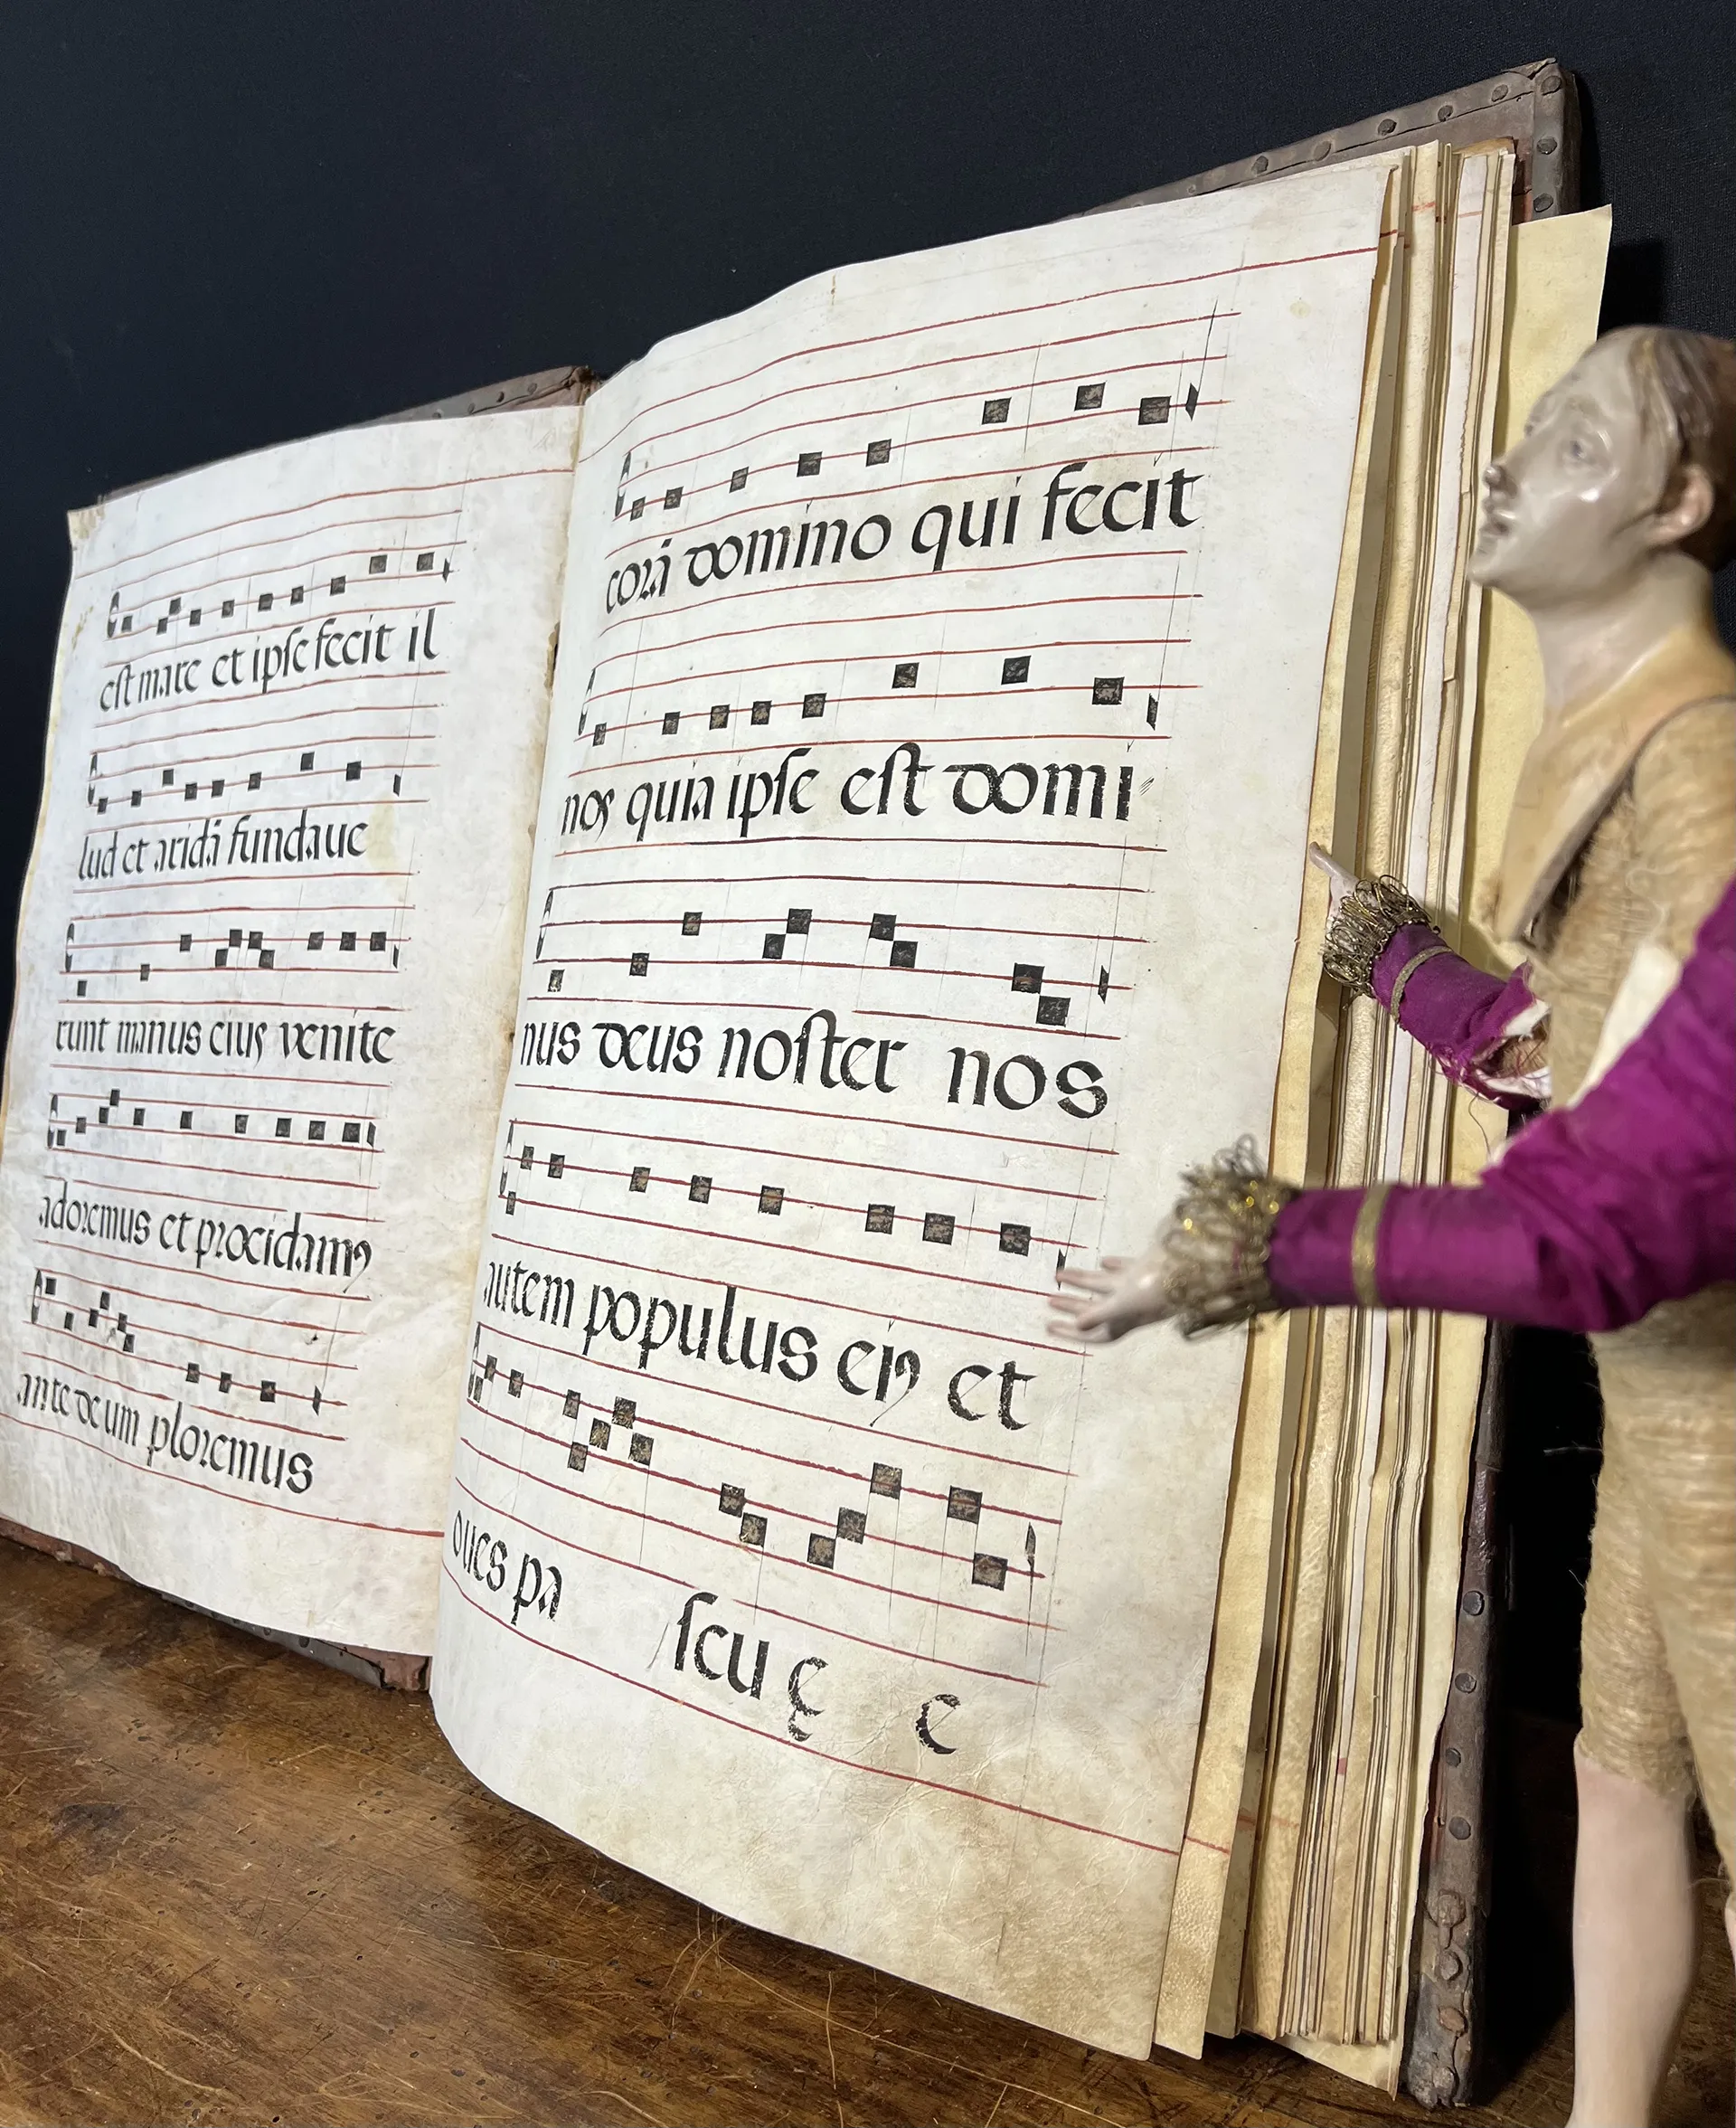 est mare et ipse fecit il
lud et aridā fundaue
runt manus eius venite
adoremus et procidamꝰ
ante deum ploremus
corā domino qui fecit
nos quia ipse est domi
nus deus noster nos
autem populus eiꝰ et
oues pa scu ę e